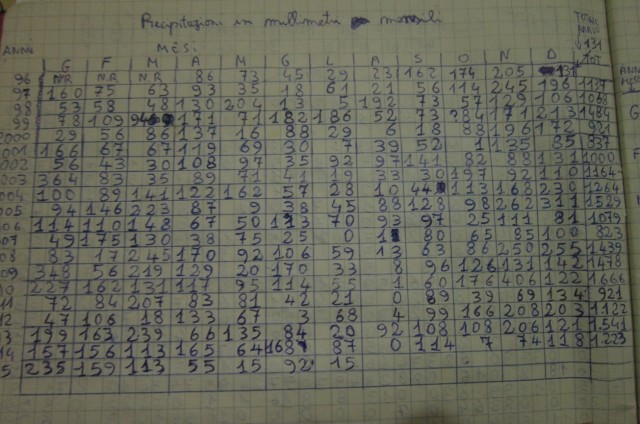 Precipitazioni in millimetri mensili
TOTALE
ANNI MESI
G F M A M G L A S O N D TOT
96 NR NR NR 86 73 45 29 23 162 174 205 131
97 160 75 63 93 35 18 61 21 56 114 245 196 1137
98 53 58 48 130 204 13 5 192 73 57 129 106 1068
99 78 109 171 71 182 186 52 73 84 171 213 1484
2000 29 56 86 137 16 88 29 6 18 88 196 172 921
001 166 67 67 119 69 30 7 39 52 1 135 85 837
002 56 43 30 108 97 35 92 97 141 82 88 131 1000
003 364 83 35 89 71 41 19 33 30 197 92 110 1164
004 100 89 141 122 162 57 28 10 44 113 168 230 1264
005 94 146 223 87 9 38 45 88 128 98 262 311 1529
06 114 110 148 67 50 113 70 93 97 25 111 81 1079
07 49 175 130 38 75 25 0 11 80 65 85 100 823
08 83 17 245 170 92 106 59 13 63 86 250 255 1439
09 348 56 219 129 20 170 33 8 96 126 131 142 1478
10 227 162 131 117 95 114 55 1 60 176 406 122 1666
11 72 84 207 83 81 42 21 0 89 39 69 134 921
12 47 106 18 133 67 3 68 4 99 166 208 203 1122
13 199 163 239 66 135 84 20 92 108 108 206 121 1541
14 157 156 113 165 64 168 87 0 114 7 74 118 1223
5 235 159 113 55 15 92 15